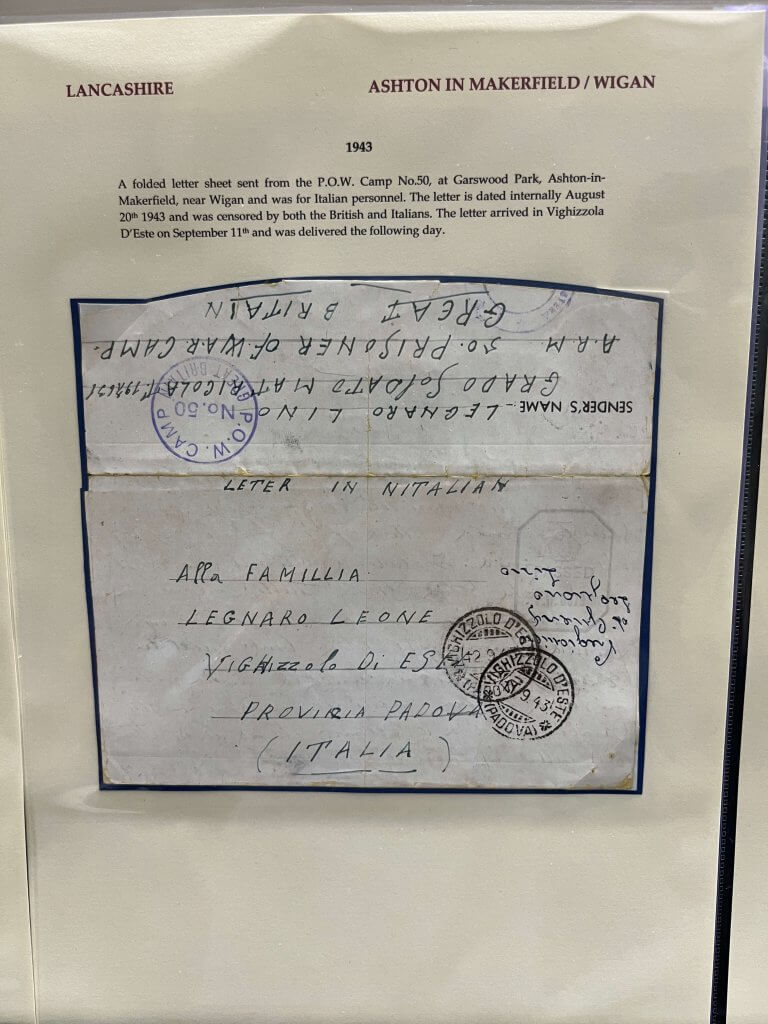 LANCASHIRE
ASHTON IN MAKERFIELD / WIGAN
1943
A folded letter sheet sent from the P.O.W. Camp No.50, at Garswood Park, Ashton-in-
Makerfield, near Wigan and was for Italian personnel. The letter is dated internally August
20th 1943 and was censored by both the British and Italians. The letter arrived in Vighizzola
D'Este on September 11th and was delivered the following day.
SENDER'S NAME – LEGNARO LINO
GRADO SOLDATO MATRICOLA
A.R.M 50. PRISONER OF WAR CAMP.
GREAT BRITAIN
P.O.W. CAMP No.50 GREAT BRITAIN
LETER IN NITALIAN
Alla FAMILLIA
LEGNARO LEONE
VIGHIZZOLO DI ESTE
PROVIRIA PADOVA
(ITALIA)
VIGHIZZOLO D'ESTE
VIGHIZZOLO D'ESTE
9.43
(PADOVA)
Prigioniero
di Guerra
Legnaro
Lino